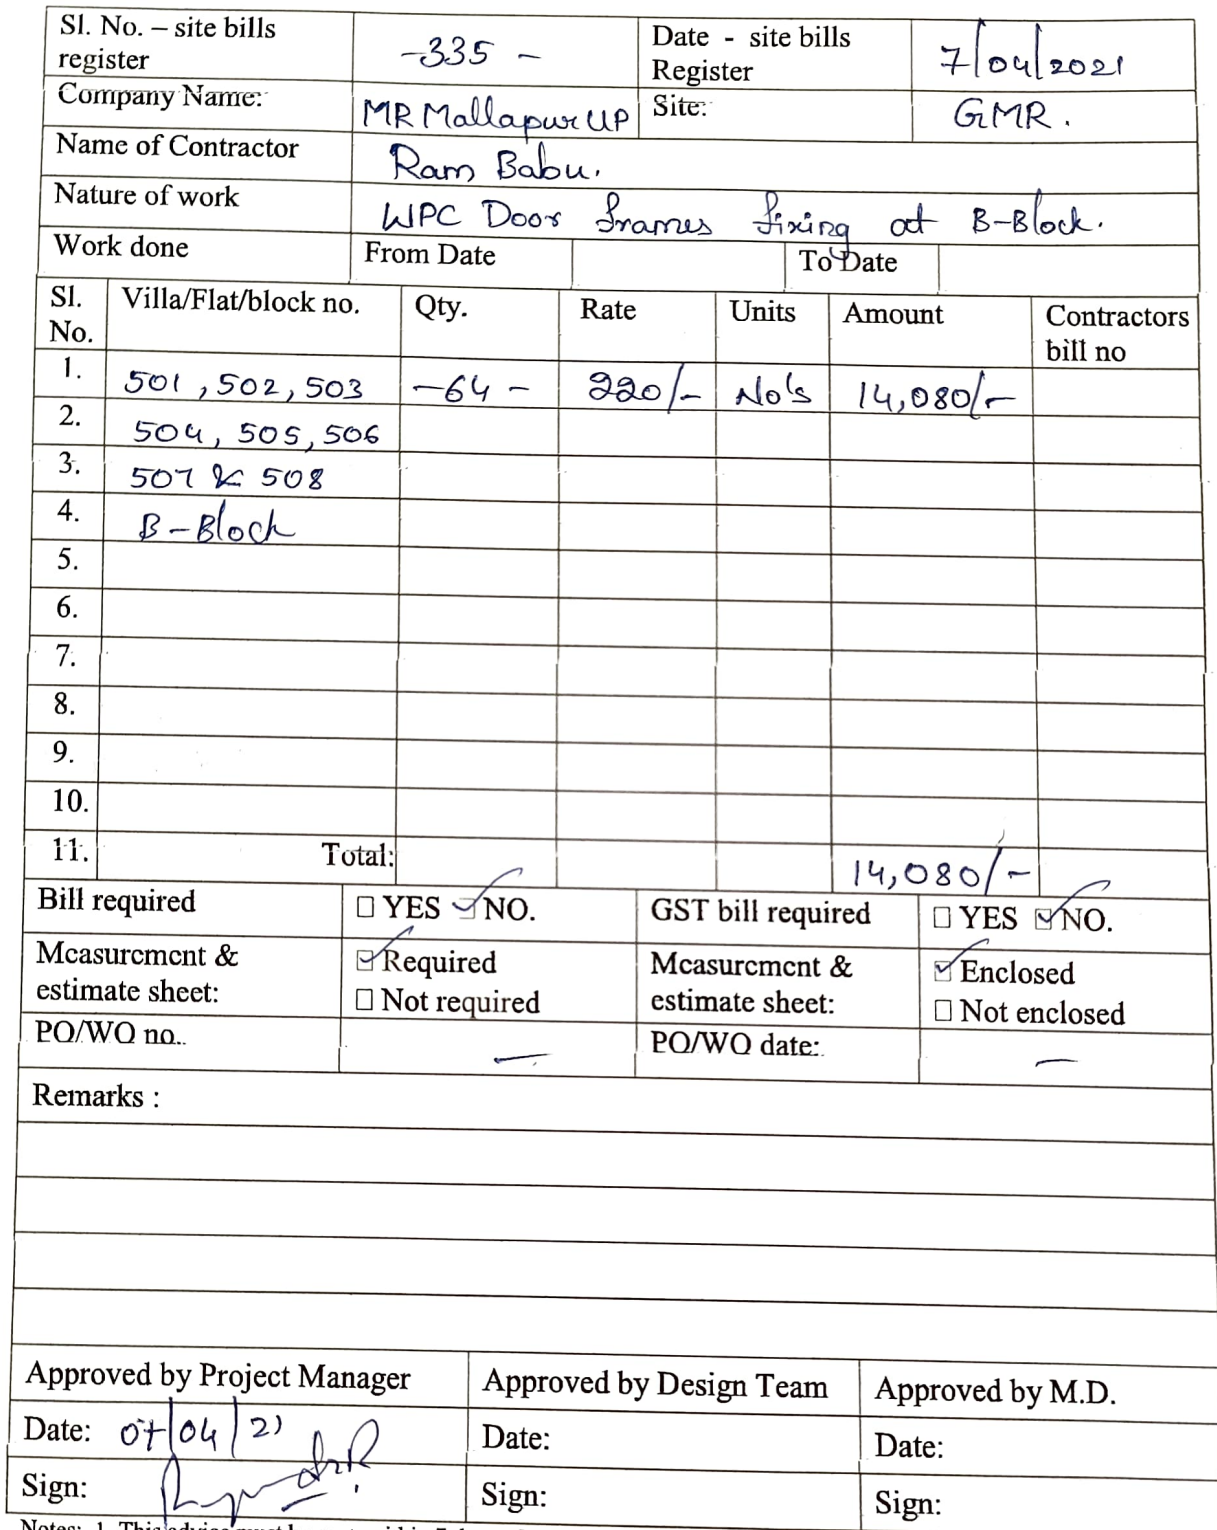 Sl. No. – site bills register -335 - Date - site bills Register 7/04/2021
Company Name: MR Mallapur UP Site: GMR.
Name of Contractor Ram Babu.
Nature of work WPC Door frames fixing at B-Block.
Work done From Date To Date
Sl. No. Villa/Flat/block no. Qty. Rate Units Amount Contractors bill no
1. 501, 502, 503 -64- 220/- No's 14,080/-
2. 504, 505, 506
3. 507 & 508
4. B-Block
5.
6.
7.
8.
9.
10.
11. Total: 14,080/-
Bill required ☐ YES ☑ NO. GST bill required ☐ YES ☑ NO.
Measurement & estimate sheet: ☑ Required ☐ Not required Measurement & estimate sheet: ☑ Enclosed ☐ Not enclosed
PO/WO no.. — PO/WO date: —
Remarks :
Approved by Project Manager Approved by Design Team Approved by M.D.
Date: 07/04/21 Date: Date:
Sign: Sign: Sign: